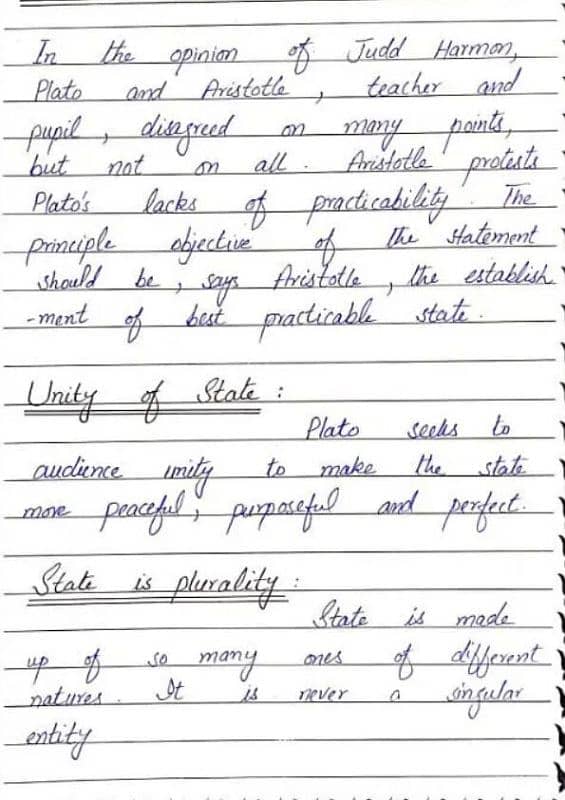 In the opinion of Judd Harmon,
Plato and Aristotle, teacher and
pupil, disagreed on many points,
but not on all. Aristotle protests
Plato's lacks of practicability. The
principle objective of the statement
should be, says Aristotle, the establish
-ment of best practicable state.
Unity of State :
Plato seeks to
audience unity to make the state
more peaceful, purposeful and perfect.
State is plurality :
State is made
up of so many ones of different
natures. It is never a singular
entity